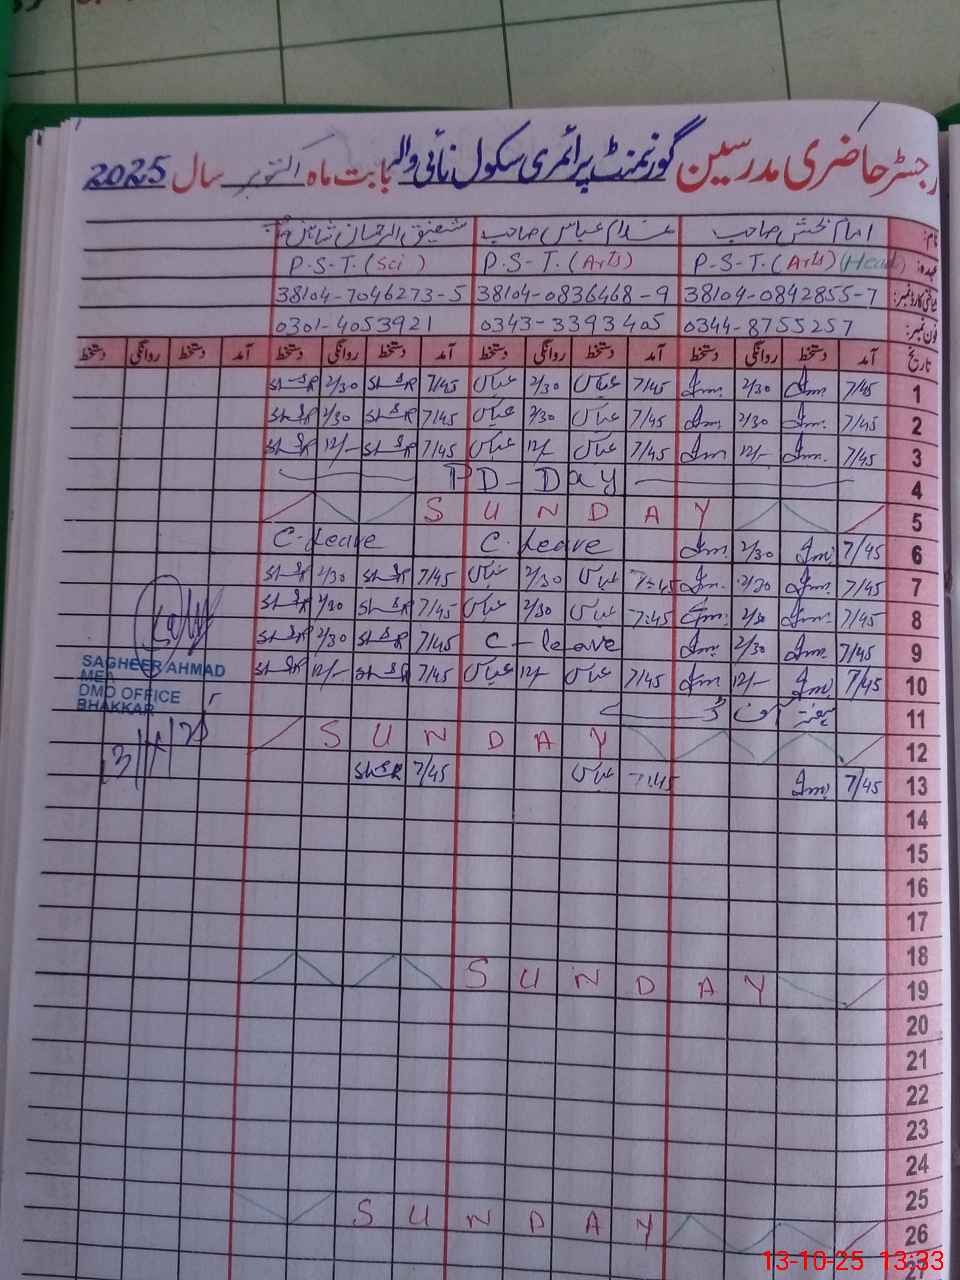 رجسٹر حاضری مدرسین گورنمنٹ پرائمری سکول نائی والہ بابت ماہ اکتوبر سال 2025
نام: امام بخش صاحب غلام عباس صاحب شفیق الرحمان
عہدہ: P.S.T.(Arts)(Head) P.S.T.(Arts) P.S.T.(Sci)
شناختی کارڈ نمبر: 38104-0842855-7 38104-0836468-9 38104-7046273-5
فون نمبر: 0344-8755257 0343-3393405 0301-4053921
تاریخ آمد دستخط روانگی دستخط آمد دستخط روانگی دستخط آمد دستخط روانگی دستخط آمد دستخط روانگی دستخط
1 7/45 2/30 7/45 عباس 2/30 عباس 7/45 2/30
2 7/45 2/30 7/45 عباس 2/30 عباس 7/45 2/30
3 7/45 12/- 7/45 عباس 12/- عباس 7/45 12/-
4 PD-Day
5 SUNDAY
6 7/45 2/30 C.Leave C-Leave
7 7/45 2/30 7:45 عباس 2/30 عباس 7/45 2/30
8 7/45 2/30 7:45 عباس 2/30 عباس 7/45 2/30
9 7/45 2/30 C-leave 7/45 2/30
10 7/45 12/- 7/45 عباس 12/- عباس 7/45 12/-
11
12 SUNDAY
13 7/45 7:45 عباس 7/45
14
15
16
17
18
19 SUNDAY
20
21
22
23
24
25
26 SUNDAY
27
SAGHEER AHMAD
MEA
DMO OFFICE
BHAKKAR
13-10-25 13:33